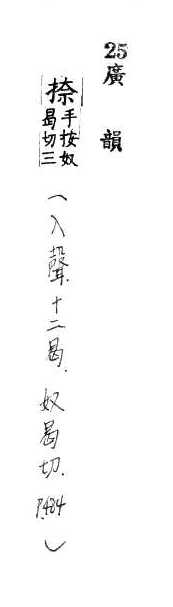 25廣韻
捺手按奴曷切三
(入聲.十二曷.奴曷切.P.484)